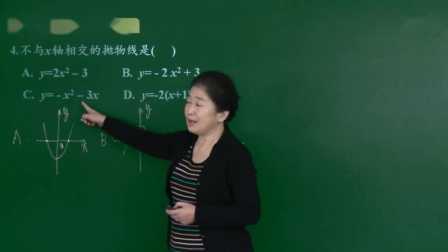 4.不与x轴相交的抛物线是(  )
A. y=2x² – 3 B. y= - 2 x² + 3
C. y= - x² – 3x D. y=-2(x+1
A y x 0 B y